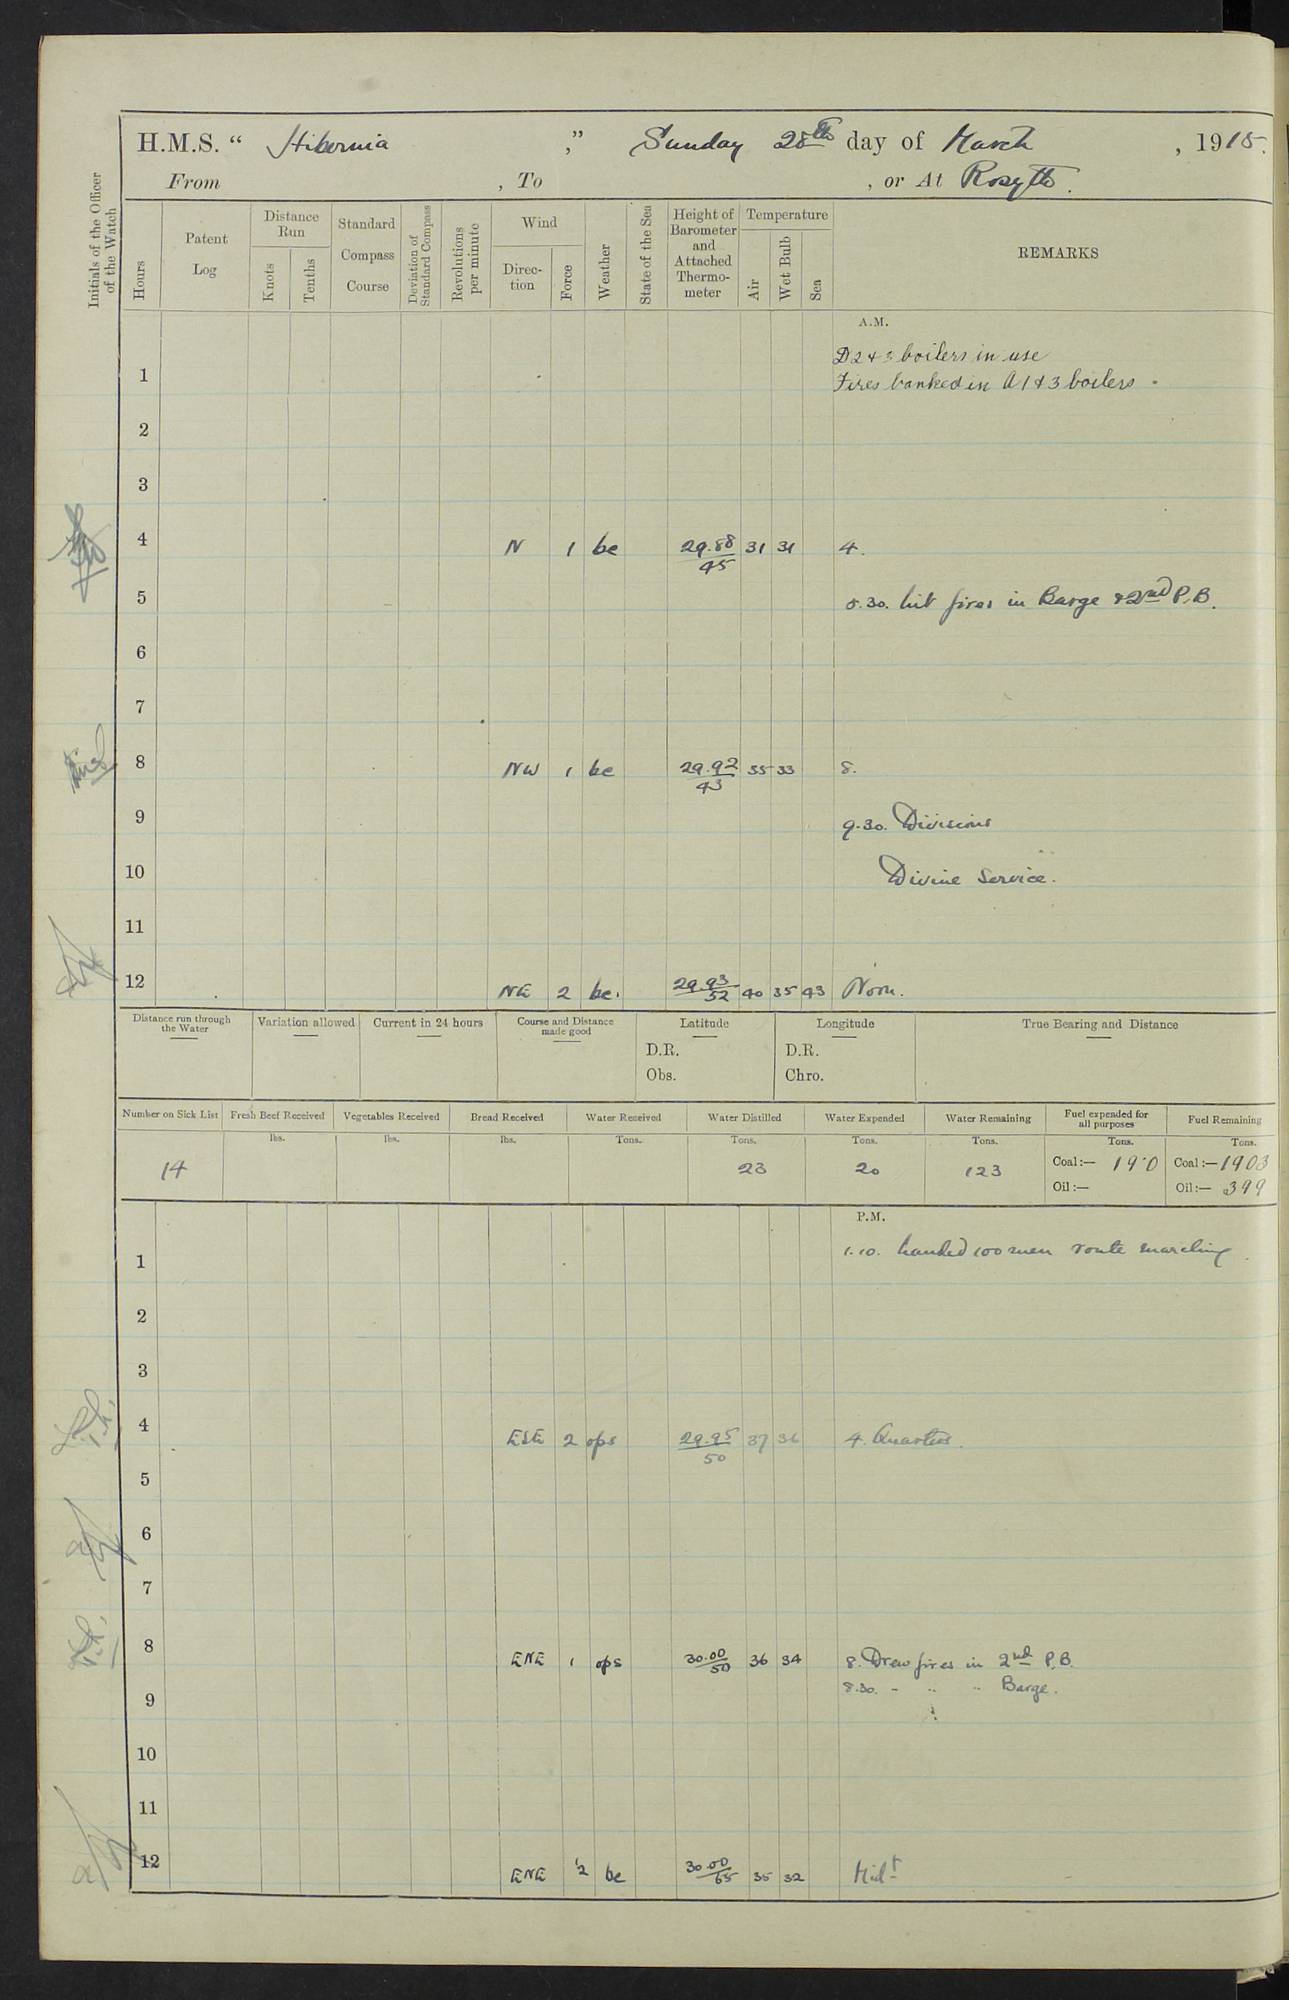 H.M.S. “ Hibernia ,” Sunday 28th day of March , 1915.
From , To , or At Rosyth.
Initials of the Officer of the Watch
Hours
Patent Log
Distance Run
Knots
Tenths
Standard Compass Course
Deviation of Standard Compass
Revolutions per minute
Wind
Direc-tion
Force
Weather
State of the Sea
Height of Barometer and Attached Thermo-meter
Temperature
Air
Wet Bulb
Sea
REMARKS
A.M.
D 2 & 3 boilers in use
1 Fires banked in A 1 & 3 boilers
2
3
4 N 1 bc 29.88/45 31 31 4.
5 5.30. Lit fires in Barge & 2nd P.B.
6
7
8 NW 1 bc 29.92/43 35 33 8.
9 9.30. Divisions
10 Divine Service.
11
12 NE 2 bc. 29.93/52 40 35 43 Noon.
Distance run through the Water
Variation allowed
Current in 24 hours
Course and Distance made good
Latitude
D.R.
Obs.
Longitude
D.R.
Chro.
True Bearing and Distance
Number on Sick List Fresh Beef Received Vegetables Received Bread Received Water Received Water Distilled Water Expended Water Remaining Fuel expended for all purposes Fuel Remaining
lbs. lbs. lbs. Tons. Tons. Tons. Tons. Tons. Tons.
14 23 20 123 Coal:— 19.0 Coal:— 1903
Oil:— Oil:— 399
P.M.
1 1.10. Landed 100 men route marching.
2
3
4 ESE 2 ops 29.95/50 37 36 4. Quarters.
5
6
7
8 ENE 1 ops 30.00/50 36 34 8. Drew fires in 2nd P.B.
9 8.30. " " " Barge.
10
11
12 ENE 1/2 bc 30.00/65 35 32 Midt